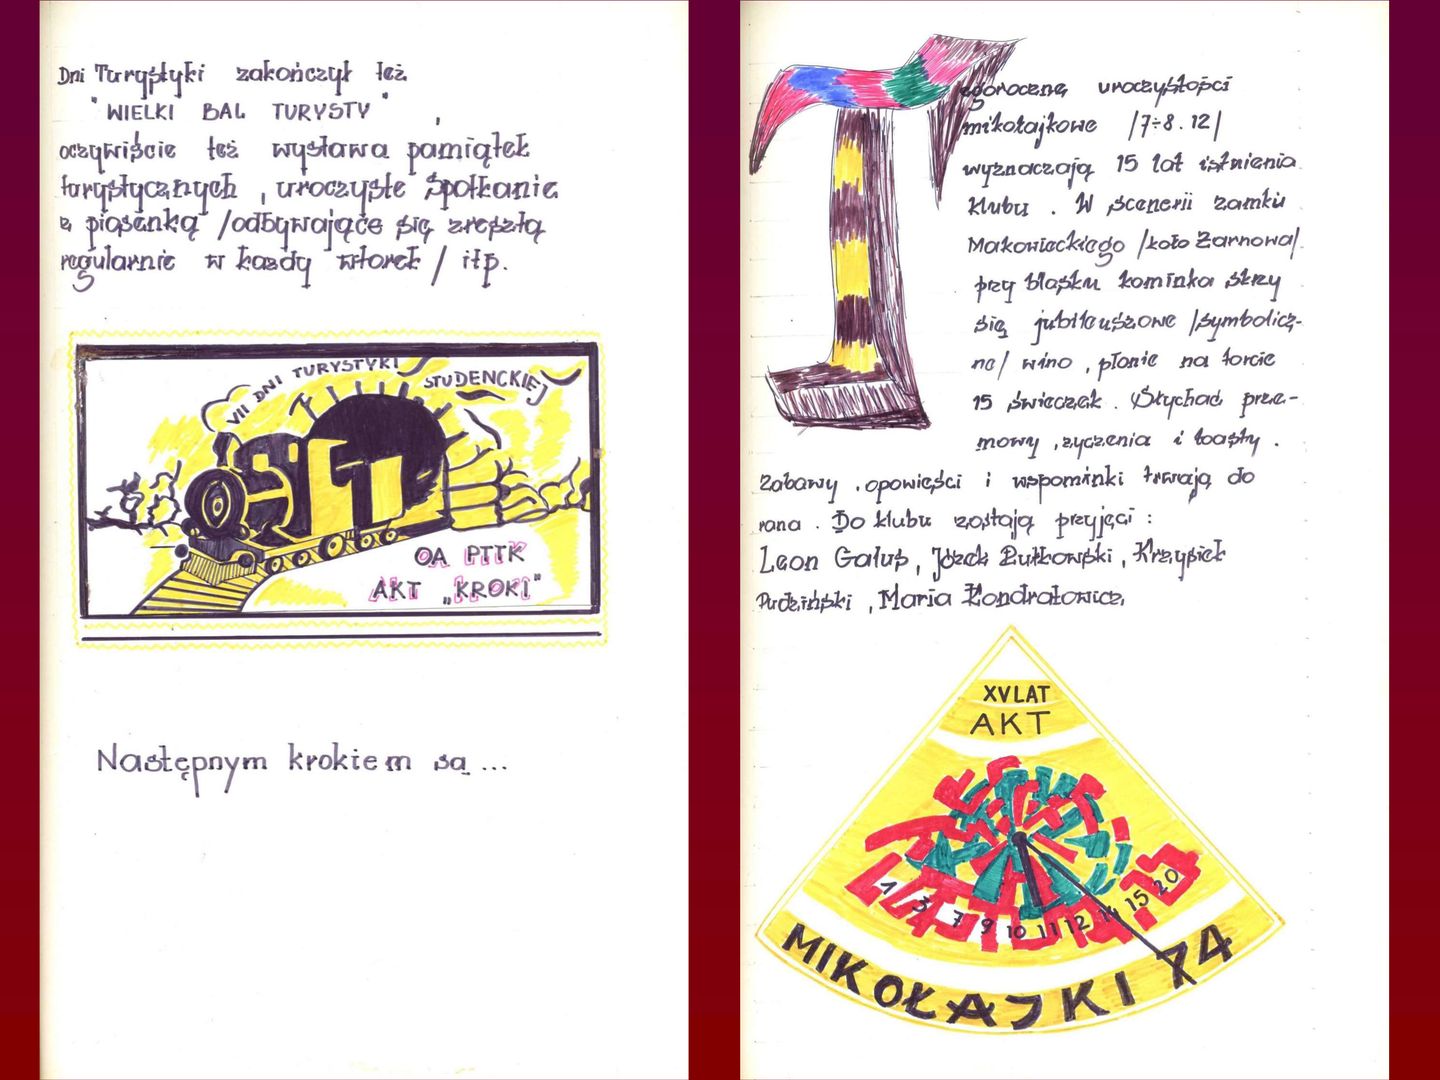 Dni Turystyki zakończył też
"WIELKI BAL TURYSTY",
oczywiście też wystawa pamiątek
turystycznych, uroczyste spotkanie
z piosenką /odbywające się zresztą
regularnie w każdy wtorek/ itp.
VII DNI TURYSTYKI STUDENCKIEJ
OA PTTK
AKT „KROKI"
Następnym krokiem są ...
Tegoroczne uroczystości
mikołajkowe /7÷8.12/
wyznaczają 15 lat istnienia
klubu. W scenerii zamku
Makowieckiego /koło Żarnowa/
przy blasku kominka skrzy
się jubileuszowe /symbolicz-
ne/ wino, płonie na torcie
15 świeczek. Słychać prze-
mowy, życzenia i toasty.
Zabawy, opowieści i wspominki trwają do
rana. Do klubu zostają przyjęci:
Leon Gałuś, Józek Rutkowski, Krzysiek
Pudziński, Maria Kondratowicz
XV LAT
AKT
1 3 7 9 10 11 12 14 15 20
MIKOŁAJKI 74